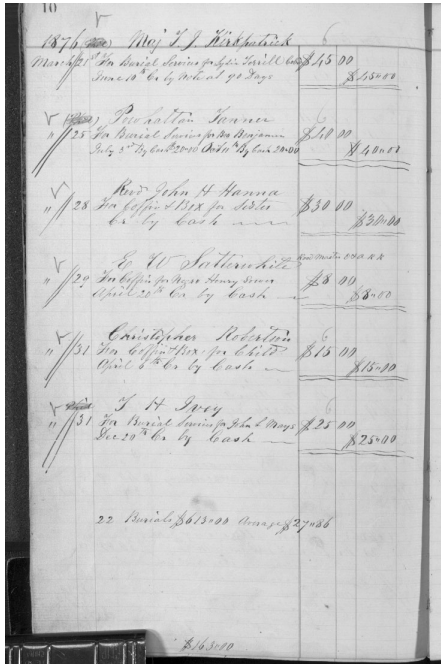 10
1876 Maj T. J. Kirkpatrick 6
March 21st For Burial Services for Lydia Terrill $45 00
June 10th Cr by Note at 90 Days $45=00
Powhattan Tanner 6
" 25 For Burial Services for Bro Benjamin $40 00
July 3rd By Cash 20=00 Oct 11th By Cash 20=00 $40=00
Revd John H Hanna
" 28 For Coffin & Box for Sister $30 00
Cr by Cash $30=00
E W Satterwhite
" 29 For Coffin for Negro Henry $8 00
April 20th Cr by Cash $8=00
Christopher Robertson 6
" 31 For Coffin & Box for Child $15 00
April 6th Cr by Cash $15=00
T H Ivey 6
" 31 For Burial Services for John L Mays $25 00
Dec 20th Cr by Cash $25=00
22 Burials $613=00 Average $27=86
$163=00